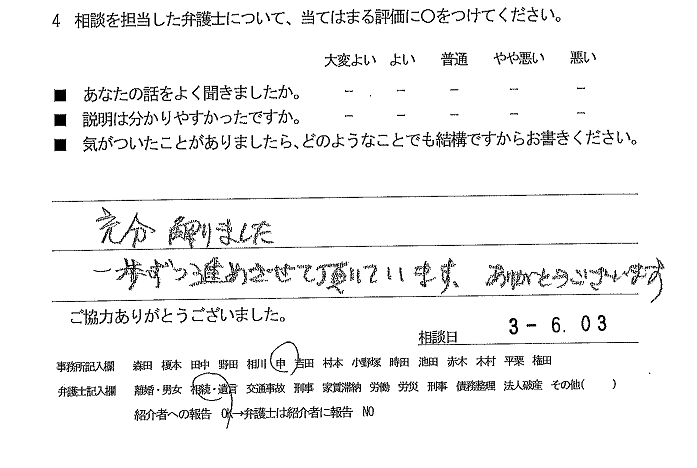 4 相談を担当した弁護士について、当てはまる評価に〇をつけてください。
大変よい よい 普通 やや悪い 悪い
■ あなたの話をよく聞きましたか。 － － － － －
■ 説明は分かりやすかったですか。 － － － － －
■ 気がついたことがありましたら、どのようなことでも結構ですからお書きください。
充分 解りました
一歩ずつ進めさせて頂いています、ありがとうございます
ご協力ありがとうございました。
相談日 3-6.03
事務所記入欄 森田 榎本 田中 野田 相川 申 吉田 村本 小野塚 時田 池田 赤木 木村 平栗 権田
弁護士記入欄 離婚・男女 相続・遺言 交通事故 刑事 家賃滞納 労働 労災 刑事 債務整理 法人破産 その他( )
紹介者への報告 OK→弁護士は紹介者に報告 NO